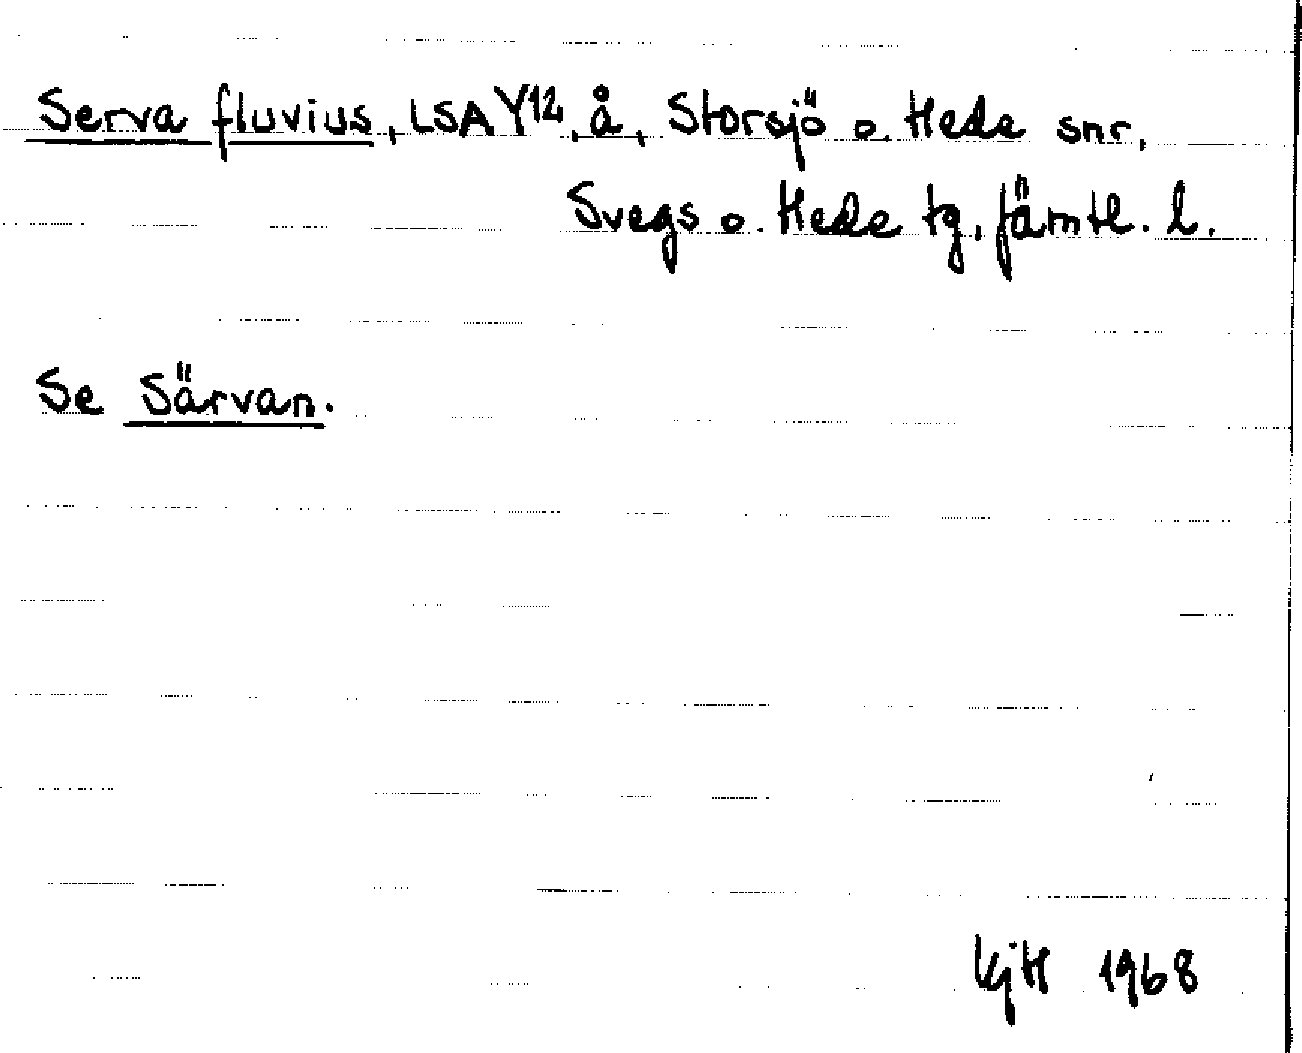 Serva fluvius, LSA Y12, å, Storsjö o. Hede snr,
Svegs o. Hede tg, Jämtl. l.
Se Särvan.
KjH 1968